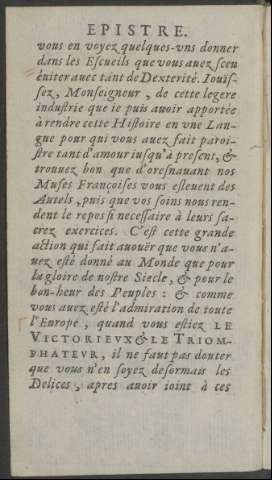 EPISTRE.
vous en voyez quelques-vns donner
dans les Escueils que vous auez sceu
éuiter auec tant de Dexterité. Iouïs-
sez, Monseigneur, de cette legere
industrie que ie puis auoir apportée
à rendre cette Histoire en vne Lan-
gue pour qui vous auez fait paroi-
stre tant d'amour iusqu'à present, &
trouuez bon que d'oresnauant nos
Muses Françoises vous esleuent des
Autels, puis que vos soins nous ren-
dent le repos si necessaire à leurs sa-
crez exercices. C'est cette grande
action qui fait auoüer que vous n'a-
uez esté donné au Monde que pour
la gloire de nostre Siecle, & pour le
bon-heur des Peuples : & comme
vous auez esté l'admiration de toute
l'Europe, quand vous estiez LE
VICTORIEVX & LE TRIOM-
PHATEVR, il ne faut pas douter
que vous n'en soyez desormais les
Delices, apres auoir ioint à ces